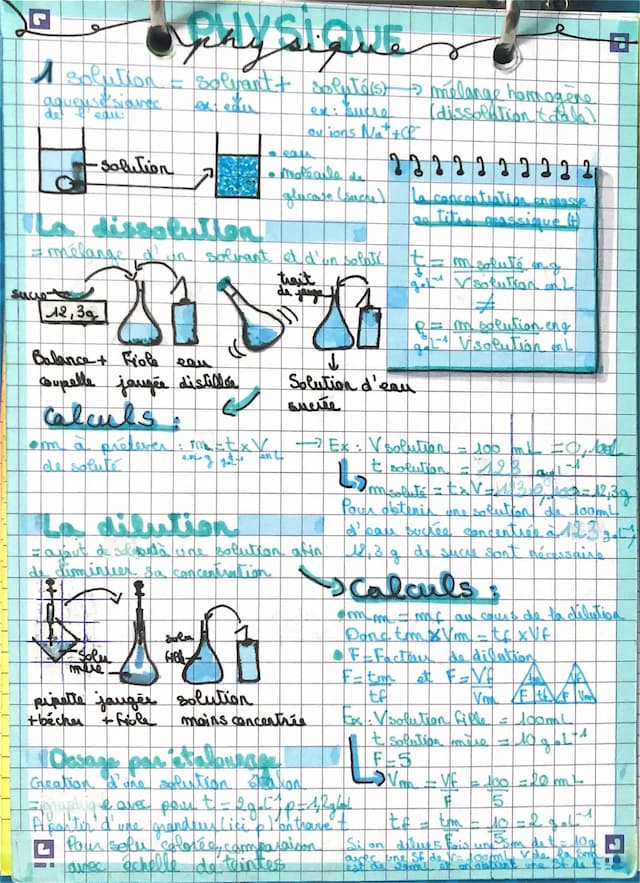 PHYSIQUE
physique
1 solution = solvant + soluté(s) → mélange homogène
aqueuse si avec ex: eau ex: sucre (dissolution totale)
de l'eau. ou ions Na⁺ + Cl⁻
solution
• eau
• molécule de
glucose (sucre)
La concentration en masse
ou titre massique (t)
t = m soluté en g
g.L⁻¹ V solution en L
≠
ρ = m solution en g
g.L⁻¹ V solution en L
La dissolution
= mélange d'un solvant et d'un soluté
sucre
12,3g
trait
de jauge
Balance + Fiole eau
coupelle jaugée distillée
Solution d'eau
sucrée
Calculs :
• m à prélever : m = t x V
de soluté en g g.L⁻¹ en L
→ Ex : V solution = 100 mL = 0,100L
t solution = 123 g.L⁻¹
m soluté = t x V = 12,3g
Pour obtenir une solution de 100mL
d'eau sucrée concentrée à 123 g.L⁻¹,
12,3 g de sucre sont nécessaire
La dilution
= ajout de à une solution afin
de diminuer sa concentration
solu
mère
solu
fille
pipette jaugée solution
+ bécher + fiole moins concentrée
Calculs :
• mm = mf au cours de la dilution
Donc tm x Vm = tf x Vf
• F = Facteur de dilution
F = tm et F = Vf
tf Vm
F tf F Vm
Ex : V solution fille = 100mL
t solution mère = 10 g.L⁻¹
F = 5
Vm = Vf = 100 = 20 mL
F 5
tf = tm = 10 = 2 g.L⁻¹
F 5
Dosage par étalonnage
Création d'une solution étalon
= graphique avec pour t = 2g.L⁻¹ ρ = 1,2g/mL
A partir d'une grandeur (ici ρ) on trouve t
Pour solu colorée, comparaison
avec échelle de teintes
Si on dilue 5 fois une de t = 10g